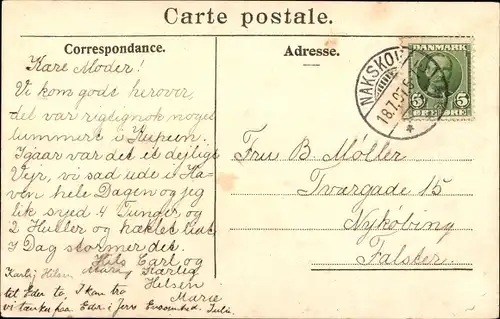 Carte postale.
Correspondance.
Adresse.
Kære Moder!
Vi kom godt herover,
det var rigtignok noget
lummert i Kupeen.
Igaar var det et dejligt
Vejr, vi sad ude i Ha-
ven hele Dagen og jeg
fik syed 4 Tunger og
2 Huller og hæklet lidt
I Dag stormer det.
Hils Carl og
Marie
Kærlig Hilsen
Kærlig
Hilsen
Marie
til Eder to, I kan tro
vi tænker paa Eder i Jerr Ensomhed.
Fru B. Møller
Tværgade 15
Nykøbing
Falster.
NAKSKOV
18.7.07
DANMARK
5 5
ØRE ØRE